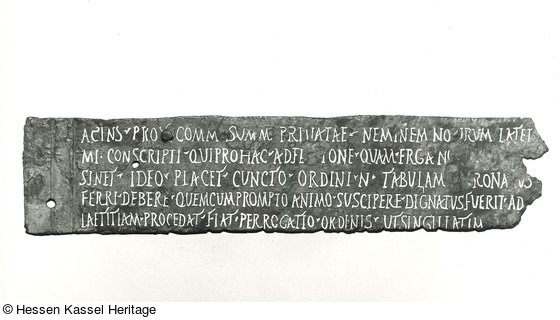 AGENS PRO COMM SUMM PRIVATAE NEMINEM NO TRUM LATET
MI CONSCRIPTI QUI PRO HAC ADFE TIONE QUAM ERGA N
SINET IDEO PLACET CUNCTO ORDINI N TABULAM RONA US
FERRI DEBERE QUEMCUM PROMPTO ANIMO SUSCIPERE DIGNATUS FUERIT AD
LAETITIAM PROCEDAT FIAT PERROGATIO ORDENIS UT SINGILLATIM
© Hessen Kassel Heritage